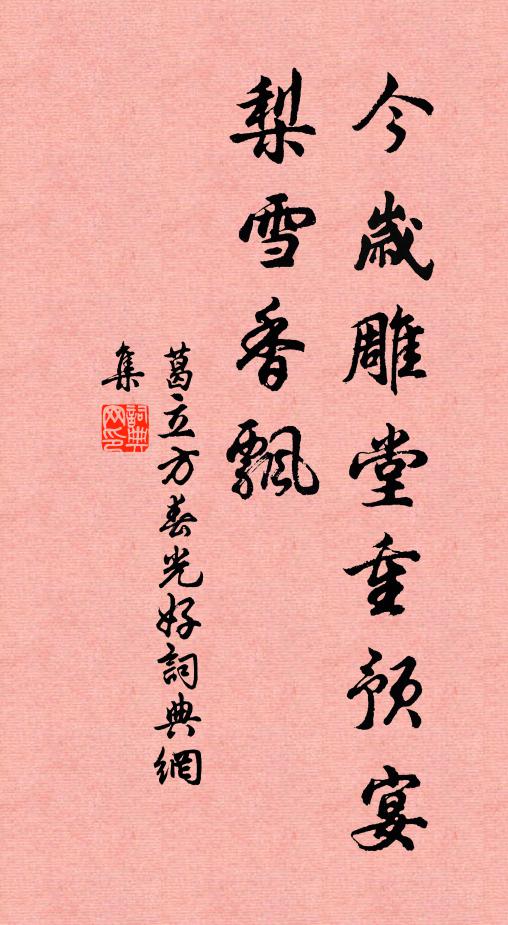 今歲雕堂重預宴
梨雪香飄
葛立方春光好詞典網
集
詞典網印